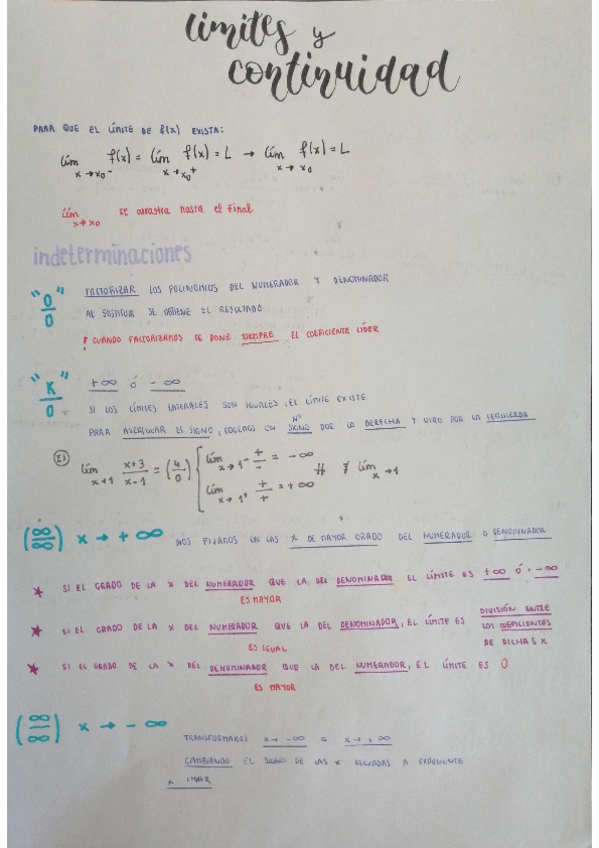 límites y
continuidad
PARA QUE EL LÍMITE DE f(x) EXISTA:
lím x→x₀⁻ f(x) = lím x→x₀⁺ f(x) = L → lím x→x₀ f(x) = L
lím x→x₀ se arrastra hasta el final
indeterminaciones
"0/0" FACTORIZAR LOS POLINOMIOS DEL NUMERADOR Y DENOMINADOR
AL SUSTITUIR SE OBTIENE EL RESULTADO
! CUANDO FACTORIZAMOS SE PONE SIEMPRE EL COEFICIENTE LÍDER
"K/0" +∞ ó -∞
SI LOS LÍMITES LATERALES SON IGUALES, EL LÍMITE EXISTE
PARA AVERIGUAR EL SIGNO, COGEMOS UN Nº SIGNO POR LA DERECHA Y OTRO POR LA IZQUIERDA
EJ lím x→1 x+3/x-1 = (4/0) { lím x→1⁻ +/- = -∞
lím x→1⁺ +/+ = +∞ ∄ lím x→1
(∞/∞) x → +∞ NOS FIJAMOS EN LAS X DE MAYOR GRADO DEL NUMERADOR O DENOMINADOR
★ SI EL GRADO DE LA X DEL NUMERADOR ES MAYOR QUE LA DEL DENOMINADOR EL LÍMITE ES +∞ Ó -∞
★ SI EL GRADO DE LA X DEL NUMERADOR ES IGUAL QUE LA DEL DENOMINADOR, EL LÍMITE ES DIVISIÓN ENTRE LOS COEFICIENTES DE DICHAS X
★ SI EL GRADO DE LA X DEL DENOMINADOR ES MAYOR QUE LA DEL NUMERADOR, EL LÍMITE ES 0
(∞/∞) x → -∞
TRANSFORMAMOS x→ -∞ a x→ +∞
CAMBIANDO EL SIGNO DE LAS X ELEVADAS A EXPONENTE
IMPAR